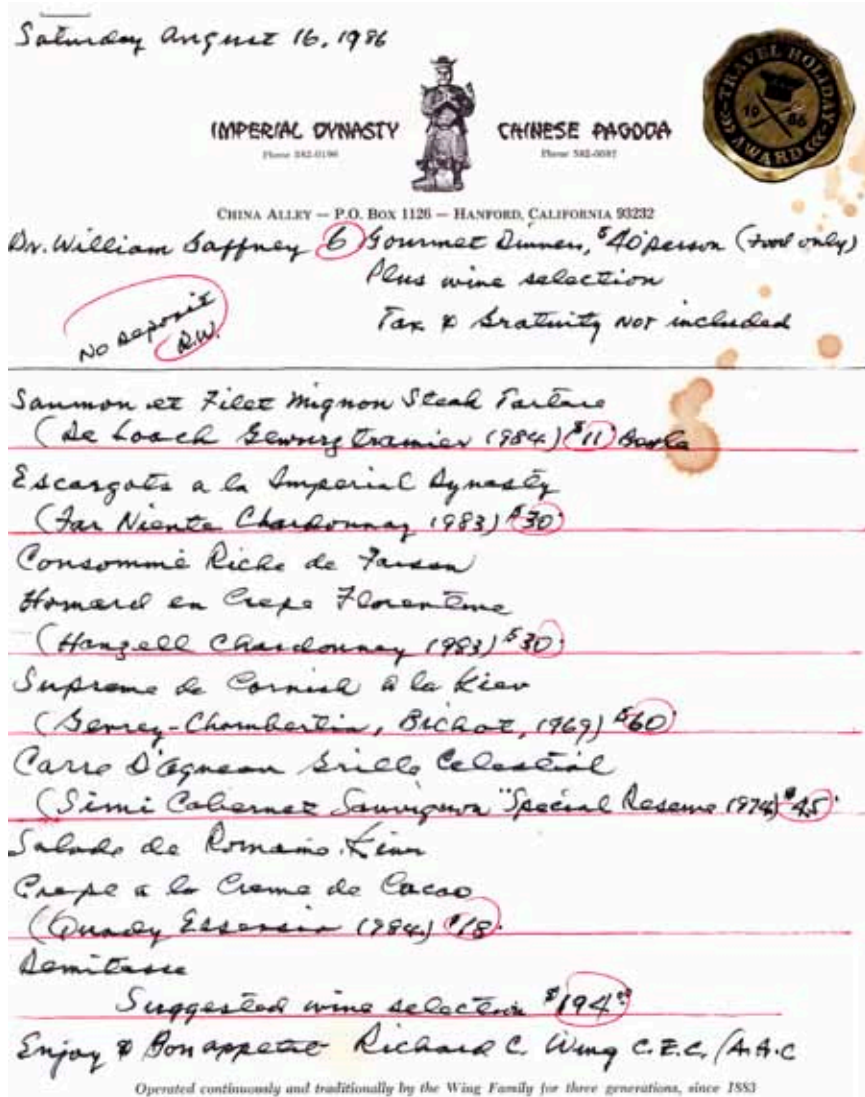 Saturday August 16, 1986
TRAVEL HOLIDAY
1986
AWARD
IMPERIAL DYNASTY CHINESE PAGODA
Phone 582-0196 Phone 582-0087
CHINA ALLEY — P.O. BOX 1126 — HANFORD, CALIFORNIA 93232
Dr. William Gaffney 6 Gourmet Dinners, $40 person (Food only)
Plus wine selection
Tax & Gratuity NOT included
No deposit
R.W.
Saumon et Filet Mignon Steak Tartare
(De Loach Gewurztramier 1984) $11
Escargots a la Imperial Dynasty
(Far Niente Chardonnay 1983) $30
Consommé Riche de Faisan
Homard en Crepe Florentine
(Hanzell Chardonnay 1983) $30
Supreme de Cornish a la Kiev
(Gevrey-Chambertin, Bichot, 1969) $60
Carre D'agneau Grille Celestial
(Simi Cabernet Sauvignon "Special Reserve 1974) $45
Salade de Romaine
Crepe a la Creme de Cacao
(Quady Essensia 1984) $18
Demitasse
Suggested wine selection $194.00
Enjoy & Bon appetit Richard C. Wing C.E.C./A.A.C
Operated continuously and traditionally by the Wing Family for three generations, since 1883